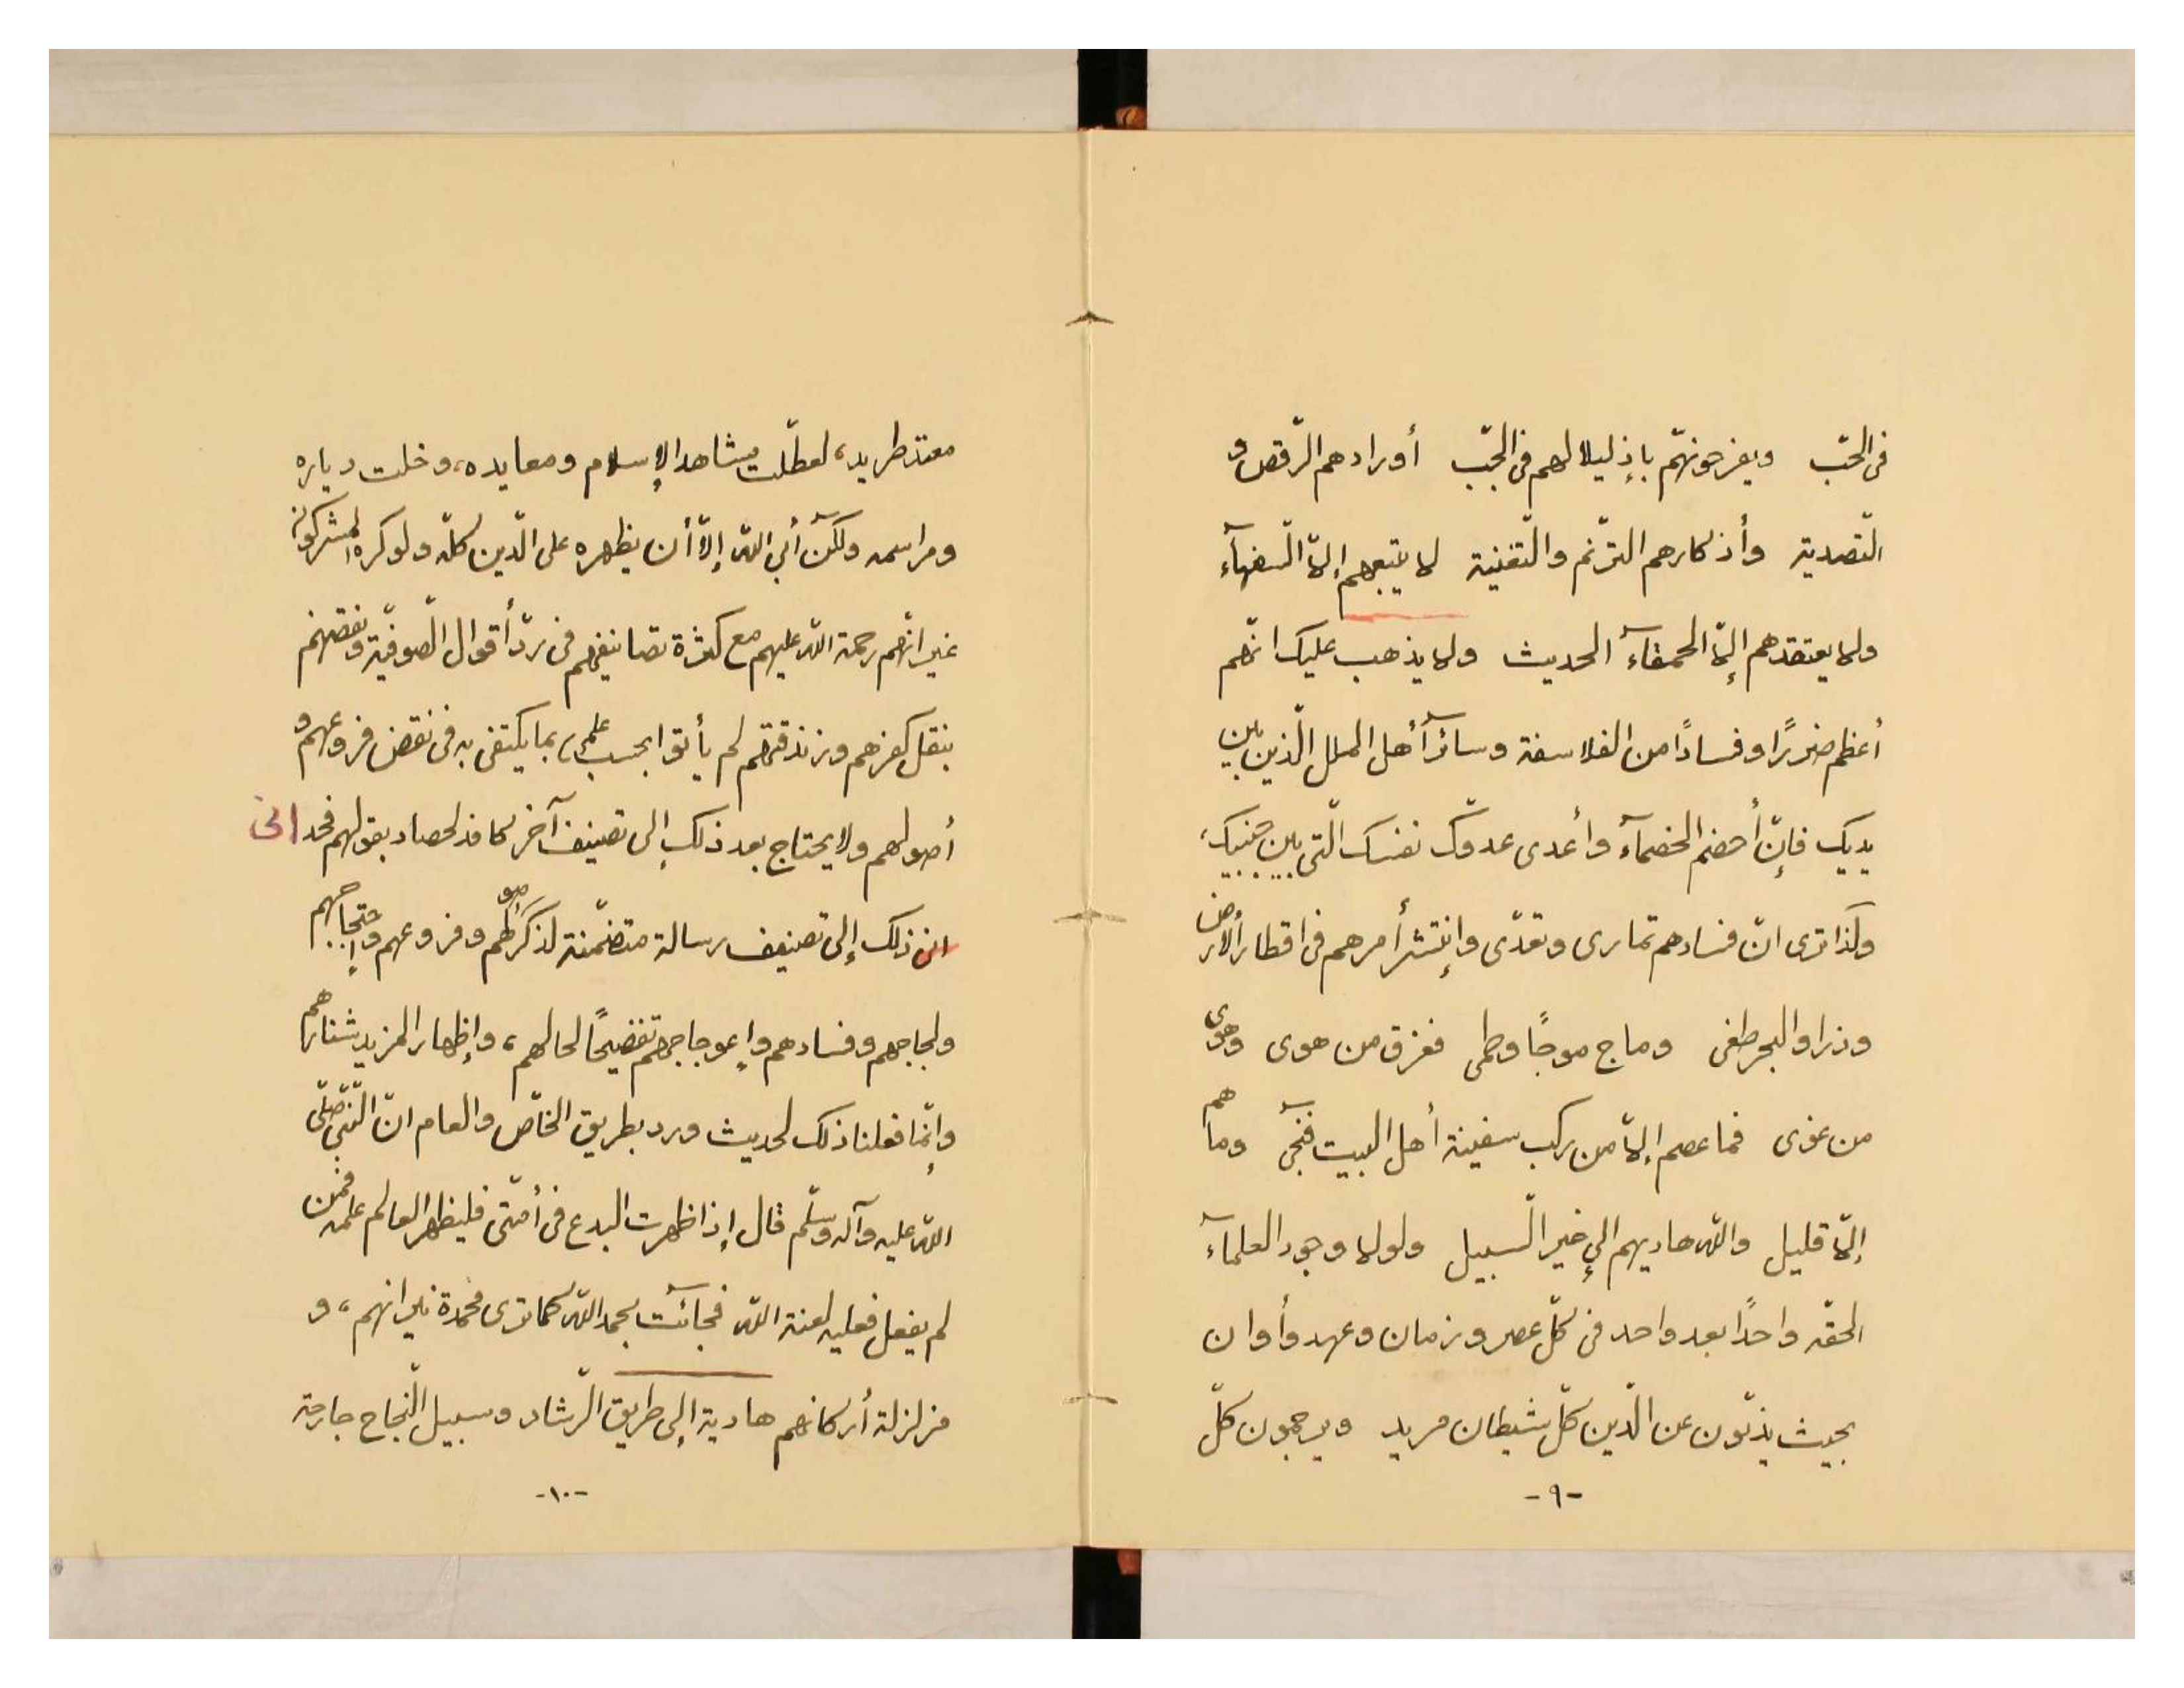 فى الحبّ ويفرحونهم بإذليلالهم فى الجبّ أورادهم الرّقص و
التّصدية وأذكارهم الترّنم والتّغنية لا يتبعهم إلّا السّفهآء
ولا يعتقدهم إلّا الحمقآء الحديث ولا يذهب عليك انّهم
أعظم ضررًا وفسادًا من الفلاسفة وسائر أهل الملل الّذين بين
يديك فإنّ أخصم الخصمآء وأعدى عدوّك نفسك الّتى بين جنبيك،
ولذا ترى انّ فسادهم تمارى وتعدّى وإنتشر أمرهم فى اقطار الأرض
وذرا والبحر طغى وماج موجًا وطمى فغرق من هوى وهوى
من غوى فما عصم إلّا من ركب سفينة أهل البيت فنجى وما هم
إلّا قليل والله هاديهم إلى خير السّبيل ولولا وجود العلمآء
الحقّه واحدًا بعد واحد فى كلّ عصر وزمان وعهد وأوان
بحيث يذبّون عن الدّين كلّ شيطان مريد ويرجمون كلّ
-٩-
طريد، لعطّلت مشاهد الإسلام ومعابده، وخلت دياره
ومراسمه ولكن أبى الله إلّا أن يظهره على الدّين كلّه ولو كره المشركون
غير انّهم رحمة الله عليهم مع كثرة تصانيفهم فى ردّ أقوال الصّوفيّة ونقضهم
بنقل كفرهم وزندقتهم لم يأتوا بحسب علمى، بما يكتفى به فى نقض فروعهم و
أصولهم ولا يحتاج بعد ذلك إلى تصنيف آخر بقولهم فحدانى
ذلك إلى تصنيف رسالة متضمّنة لذكر أصولهم وفروعهم وإحتجاجهم
ولجاجهم وفسادهم وإعوجاجهم تفضيحًا لحالهم، وإظهار المزيد شنارهم
وإنّما فعلنا ذلك لحديث ورد بطريق الخاّص والعام انّ النّبىّ صلّى
الله عليه وآله وسلّم قال إذا ظهرت البدع فى أمّتى فليظهر العالم علمه فمن
لم يفعل فعليه لعنة الله فجائت بحمد الله كما ترى مخمدة نيرانهم، و
مزلزلة أركانهم هادية إلى طريق الرّشاد وسبيل النّجاح
-١٠-